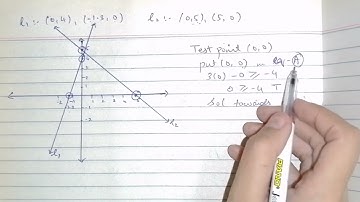 l₁ :- (0,4), (-1.3, 0)    l₂ :- (0,5), (5,0)
Test point (0,0)
put (0,0) in eq-A
3(0) - 0 ≥ -4
0 ≥ -4 T
Sol towards
l₁
l₂